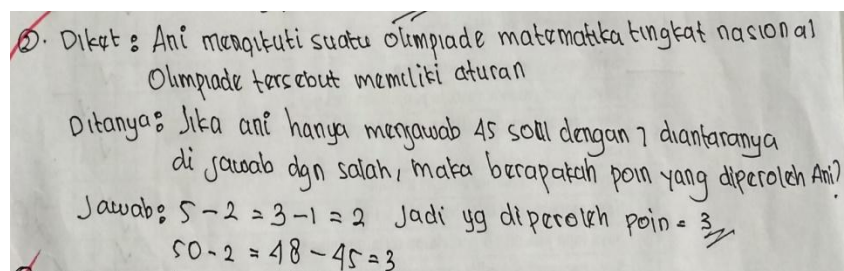 ②. Diket : Ani mengikuti suatu olimpiade matematika tingkat nasional
Olimpiade tersebut memiliki aturan
Ditanya : Jika ani hanya menjawab 45 soal dengan 7 diantaranya
di jawab dgn salah, maka berapakah poin yang diperoleh Ani?
Jawab : 5 - 2 = 3 - 1 = 2 Jadi yg diperoleh poin = 3
50 - 2 = 48 - 45 = 3